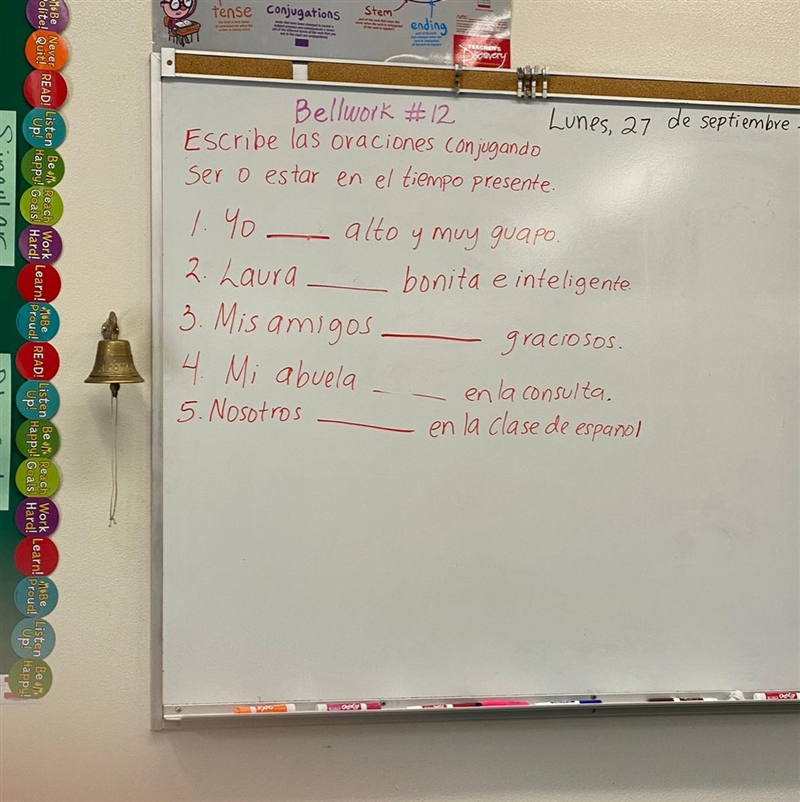 tense
Conjugations
Stem
ending
TEACHER'S
Discovery
Bellwork #12
Lunes, 27 de septiembre
Escribe las oraciones conjugando
Ser o estar en el tiempo presente.
1. Yo ____ alto y muy guapo.
2. Laura ____ bonita e inteligente.
3. Mis amigos ____ graciosos.
4. Mi abuela __ __ en la consulta.
5. Nosotros ____ en la clase de español
Be Polite!
Never Quit!
READ!
Listen Up!
Be Happy!
Reach Goals!
Work Hard!
Learn!
Be Proud!
READ!
Listen Up!
Be Happy!
Reach Goals!
Work Hard!
Learn!
Be Proud!
Listen Up!
Be Happy!
Singular
EXPO
EXPO
EXPO